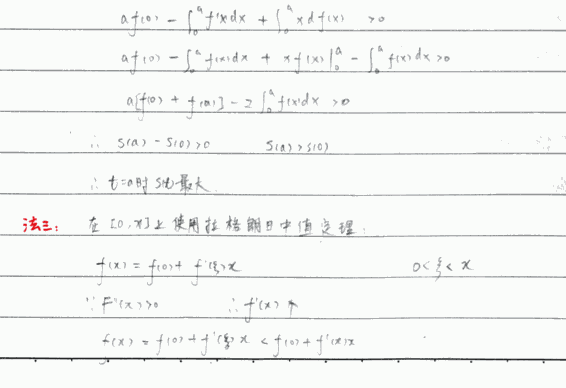 af(0) - ∫₀ᵃ f(x)dx + ∫₀ᵃ x df(x) >0
af(0) - ∫₀ᵃ f(x)dx + xf(x)|₀ᵃ - ∫₀ᵃ f(x)dx >0
a[f(0) + f(a)] - 2∫₀ᵃ f(x)dx >0
∴ S(a) - S(0) >0 S(a) > S(0)
∴ t=a时 S(t)最大
法三: 在 [0,x]上使用拉格朗日中值定理:
f(x) = f(0) + f'(ξ)x 0<ξ<x
∵ F''(x)>0 ∴ f'(x)↑
f(x) = f(0) + f'(ξ)x < f(0) + f'(x)x